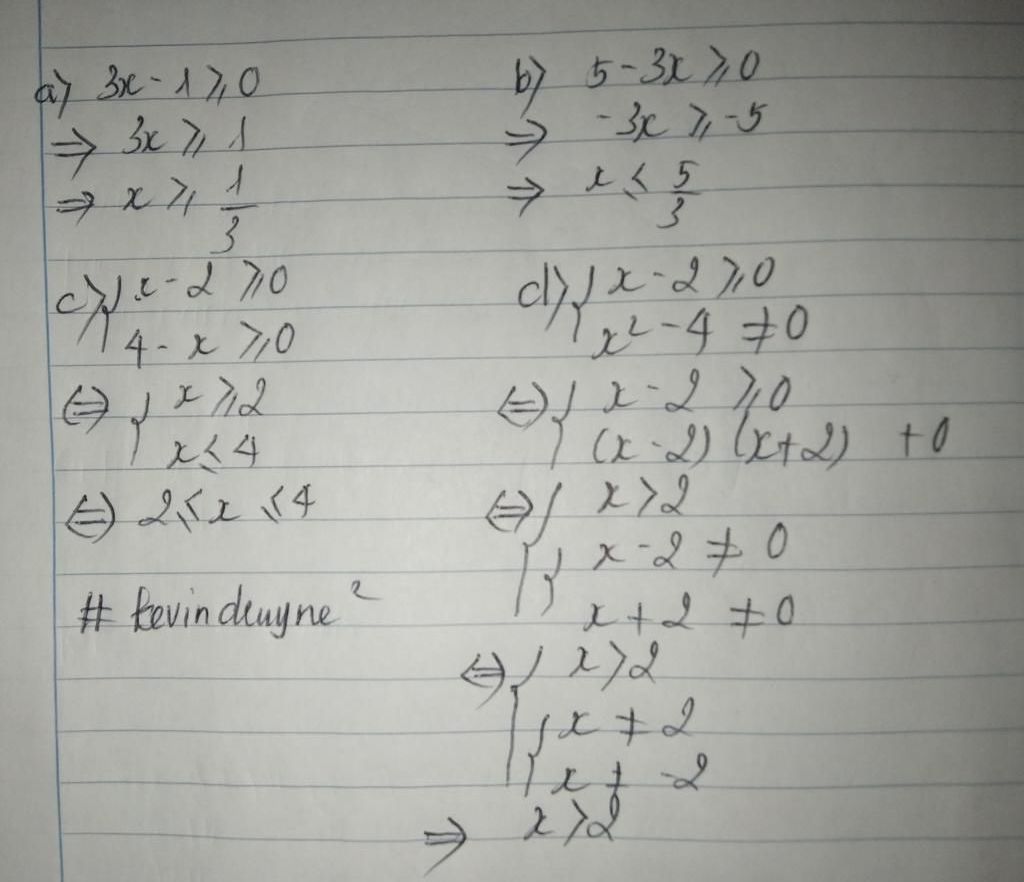 a) 3x - 1 ⩾ 0
⇒ 3x ⩾ 1
⇒ x ⩾ 1/3
b) 5 - 3x ⩾ 0
⇒ -3x ⩾ -5
⇒ x ⩽ 5/3
c) { x - 2 ⩾ 0
4 - x ⩾ 0
⇔ { x ⩾ 2
x ⩽ 4
⇔ 2 ⩽ x ⩽ 4
d) { x - 2 ⩾ 0
x² - 4 ≠ 0
⇔ { x - 2 ⩾ 0
(x - 2) (x + 2) + 0
⇔ { x > 2
{ x - 2 ≠ 0
x + 2 ≠ 0
⇔ { x > 2
{ x ≠ 2
x ≠ -2
⇒ x > 2